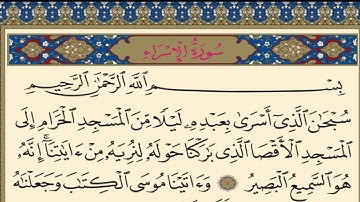 سُورَةُ الإِسْرَاءِ
بِسْمِ ٱللَّهِ ٱلرَّحْمَٰنِ ٱلرَّحِيمِ
سُبْحَٰنَ ٱلَّذِىٓ أَسْرَىٰ بِعَبْدِهِۦ لَيْلًا مِّنَ ٱلْمَسْجِدِ ٱلْحَرَامِ إِلَى
ٱلْمَسْجِدِ ٱلْأَقْصَا ٱلَّذِى بَٰرَكْنَا حَوْلَهُۥ لِنُرِيَهُۥ مِنْ ءَايَٰتِنَآ ۚ إِنَّهُۥ
هُوَ ٱلسَّمِيعُ ٱلْبَصِيرُ ١ وَءَاتَيْنَا مُوسَى ٱلْكِتَٰبَ وَجَعَلْنَٰهُ